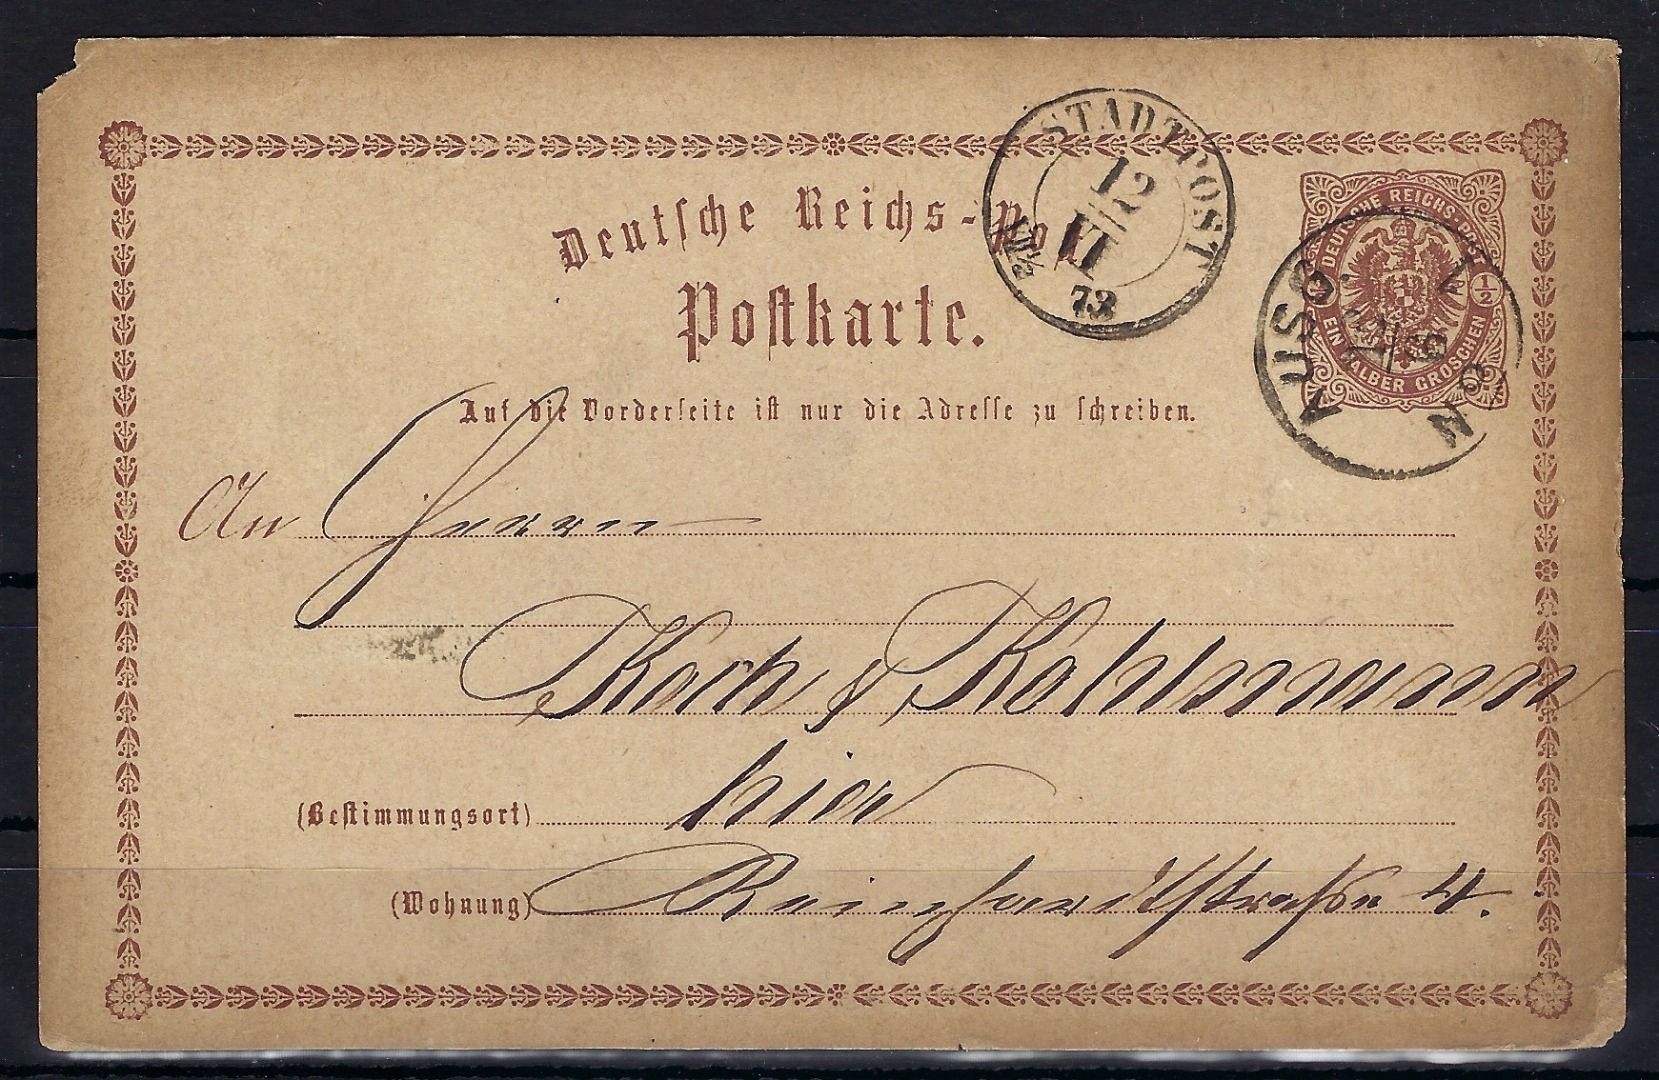 Deutsche Reichs-Po
Postkarte.
Auf die Vorderseite ist nur die Adresse zu schreiben.
STADTPOST
12
VI
73
DEUTSCHE REICHS-POST
1/2
EIN HALBER GROSCHEN
AUSG
No 8
An Herrn
Koch & Kohlmann
hier
(Bestimmungsort)
(Wohnung) Reinhardtstraße 4.